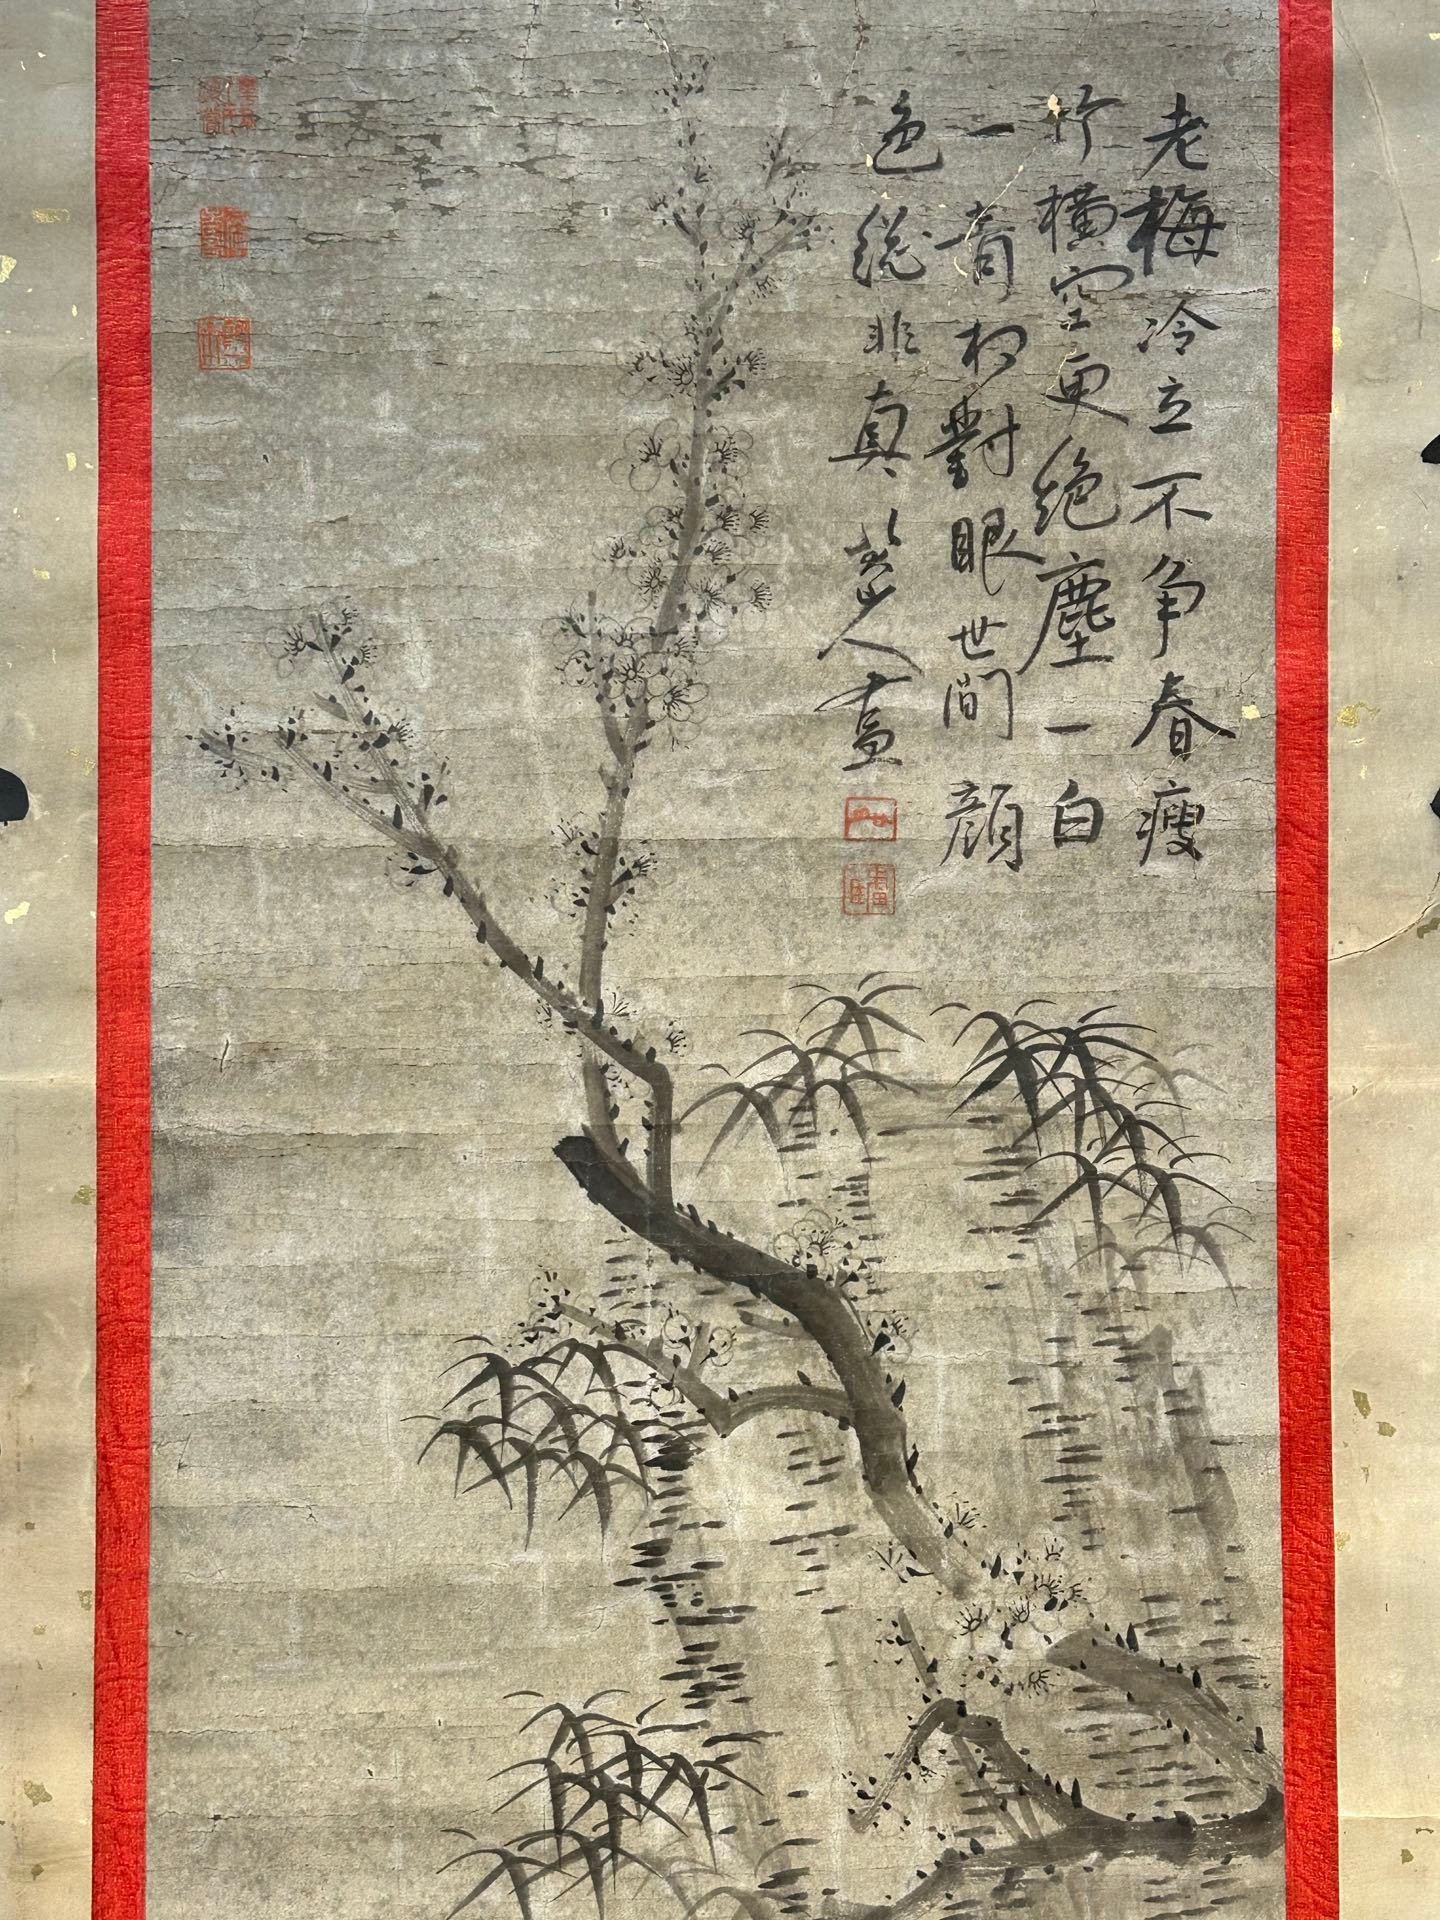 老梅冷立不争春瘦
竹橫空更絕塵一白
一青相對眼世間顏
色總非真 黃山人畫